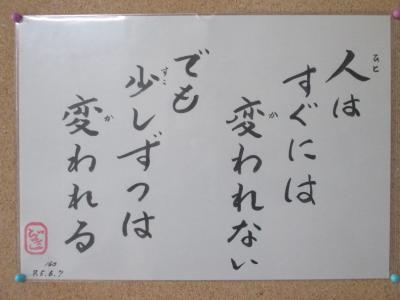 人は
ひと
すぐには
変われない
か
でも
少しずつは
すこ
変われる
か
R.5.6.7